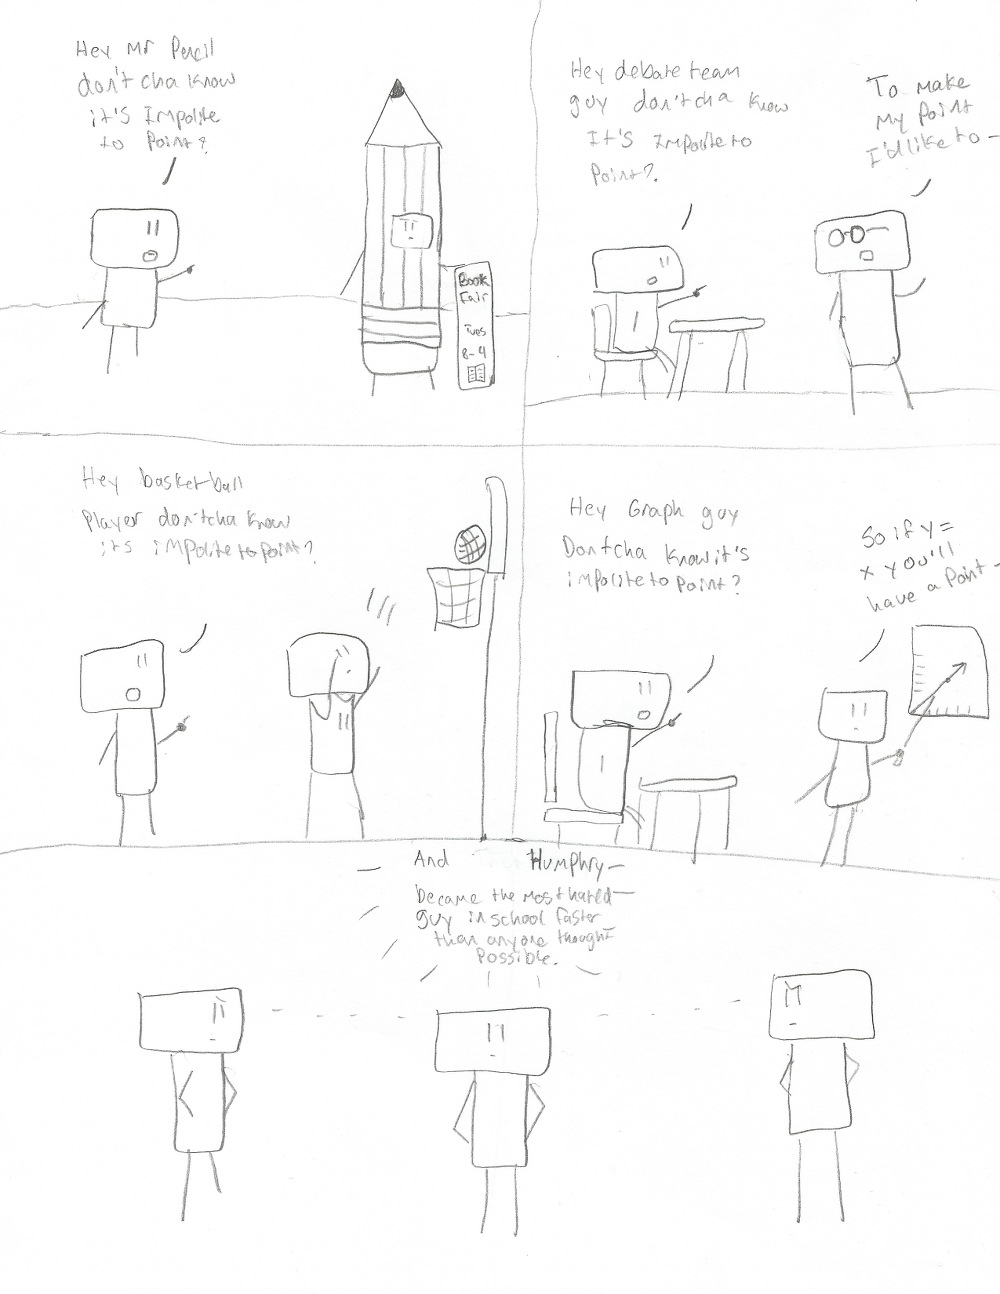 Hey Mr Pencil
don'tcha know
it's Impolite
to Point?
Book
Fair
Tues
8-4
Hey debate team
guy don'tcha know
It's Impolite to
Point?
To make
My Point
I'd like to-
Hey basketball
Player don'tcha know
it's impolite to point?
Hey Graph guy
Dontcha know it's
impolite to Point?
So if y=
x you'll
have a Point-
And Humphry-
became the most hated
guy in school faster
than anyone thought
Possible.